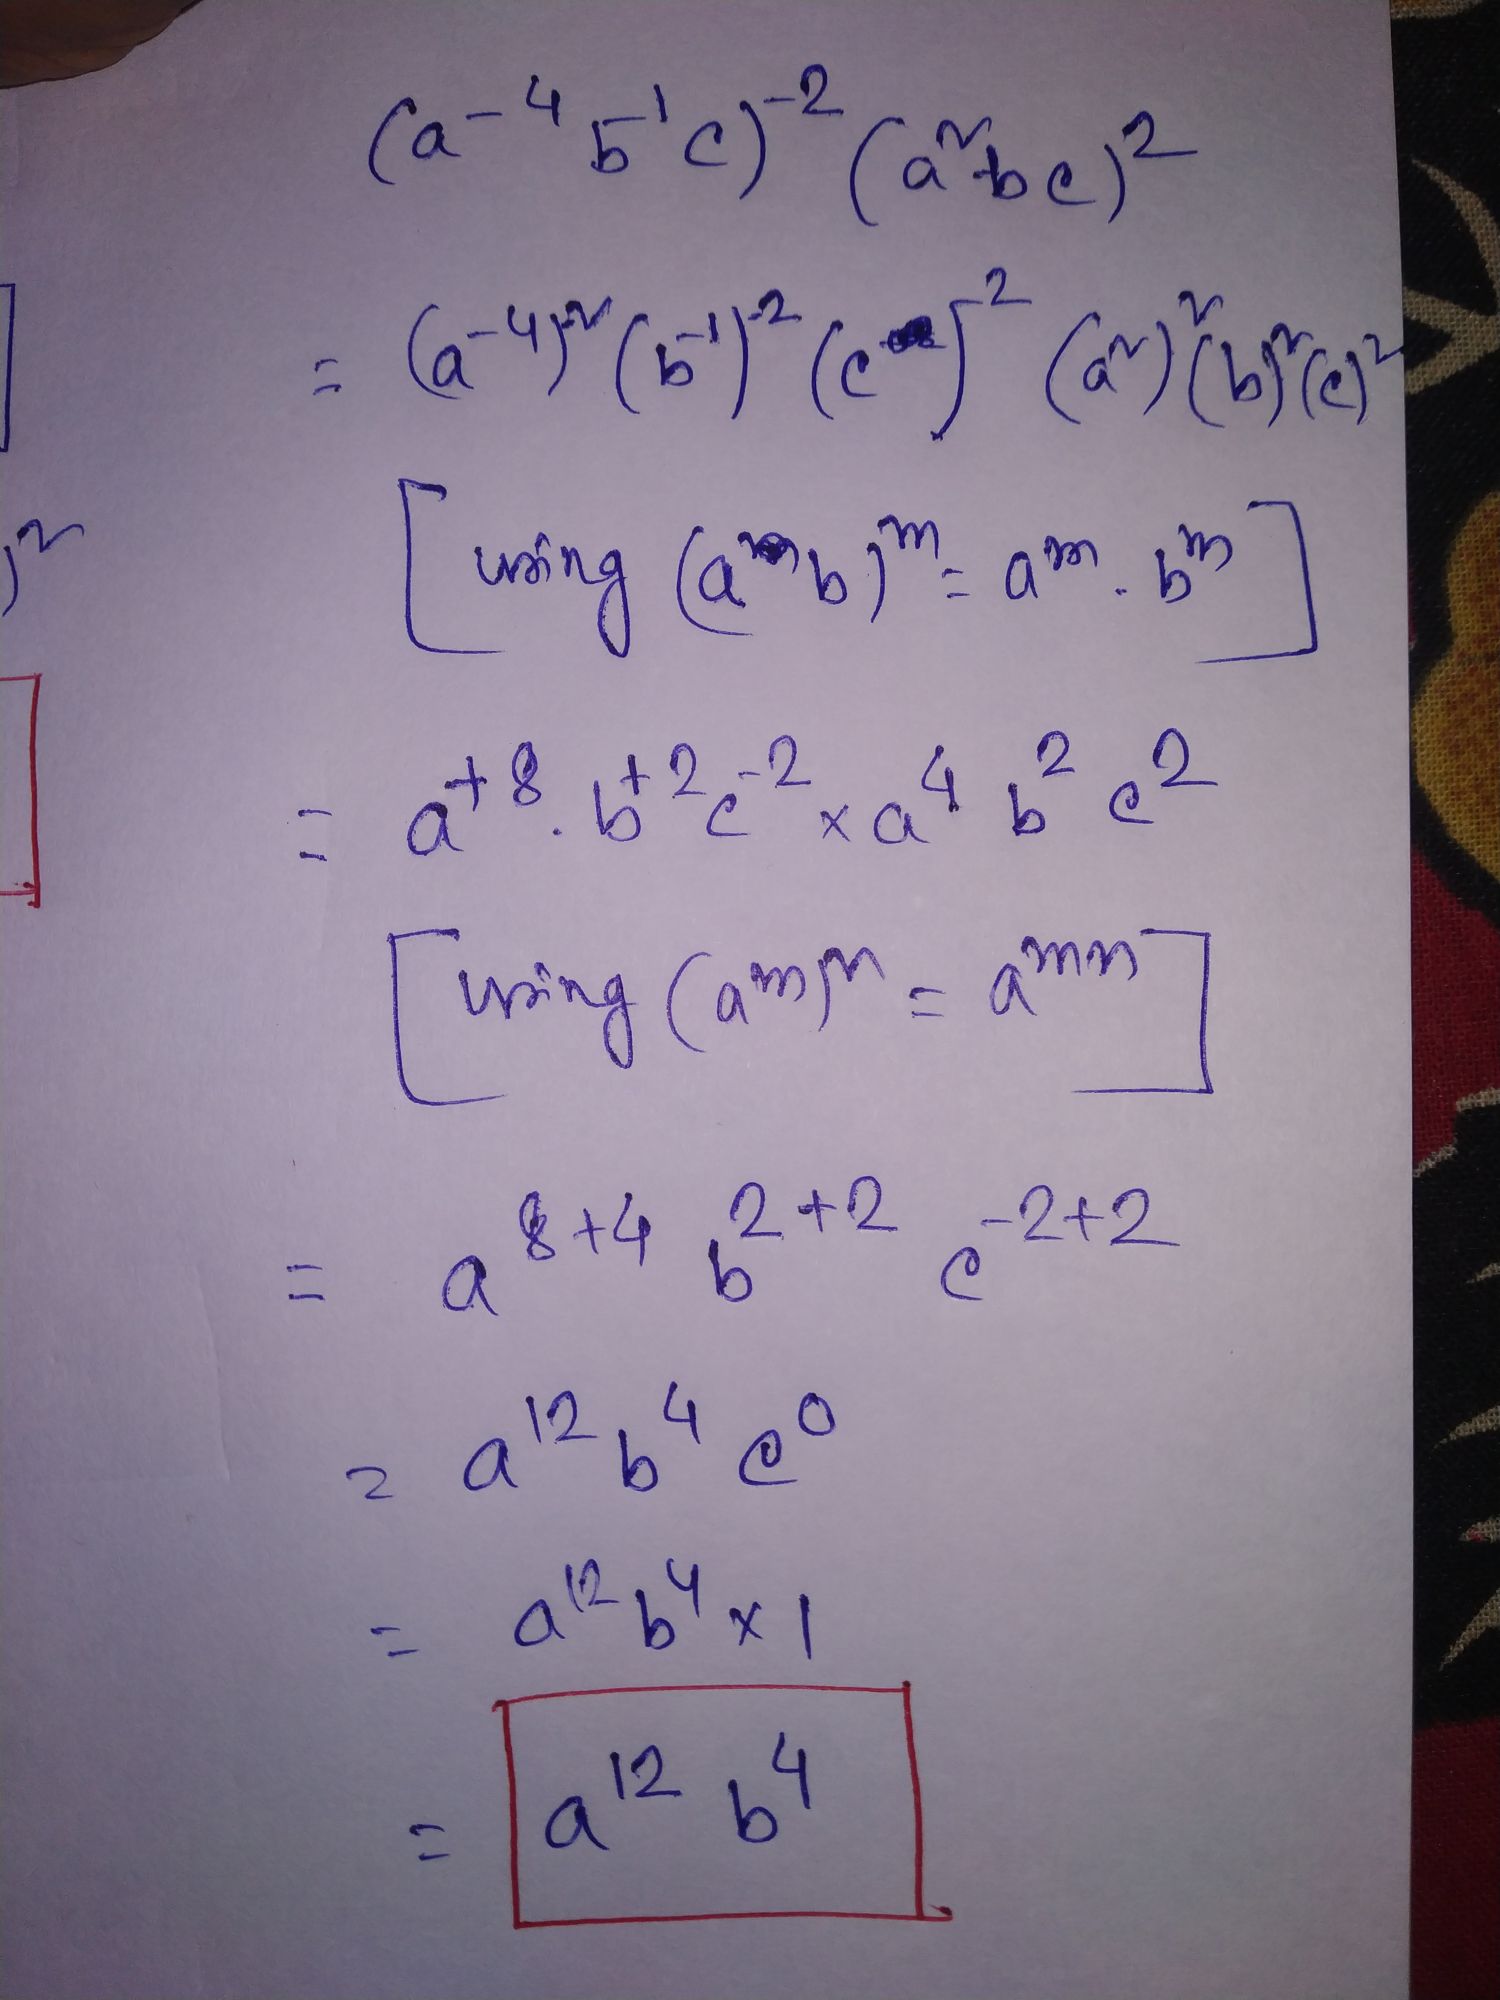 (a⁻⁴ b⁻¹ c)⁻² (a² b c)²
= (a⁻⁴)⁻² (b⁻¹)⁻² (c)⁻² (a²)² (b)² (c)²
[using (a b)ᵐ = aᵐ . bᵐ]
= a⁺⁸ . b⁺² c⁻² × a⁴ b² c²
[using (aᵐ)ⁿ = aᵐⁿ]
= a⁸⁺⁴ b²⁺² c⁻²⁺²
= a¹² b⁴ c⁰
= a¹² b⁴ × 1
= a¹² b⁴
)²